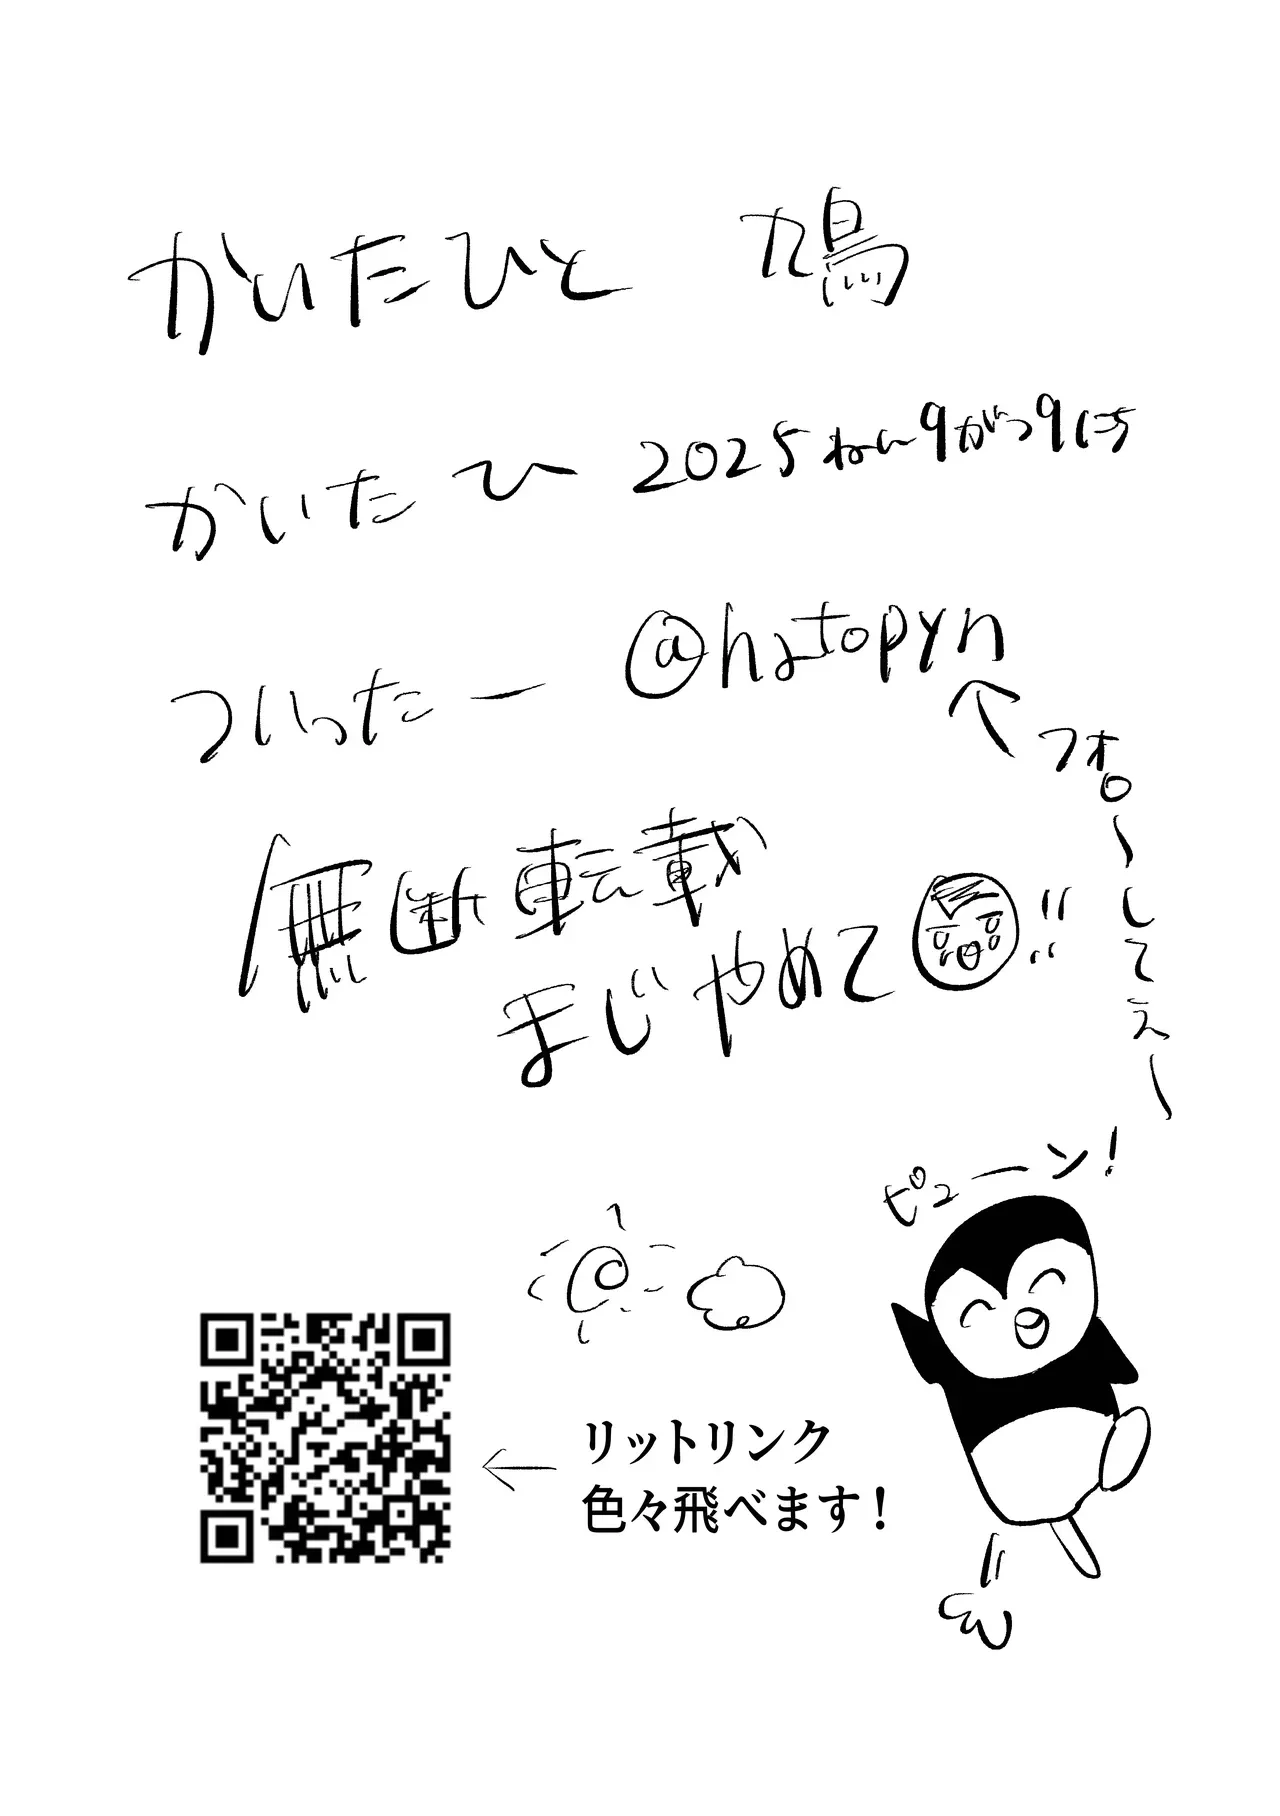 かいたひと 鳩
かいたひ 2025ねん9がつ9にち
ついったー @hatopyn
フォロ〜してえ〜
無断転載
まじやめて
ピューン!
リットリンク
色々飛べます!